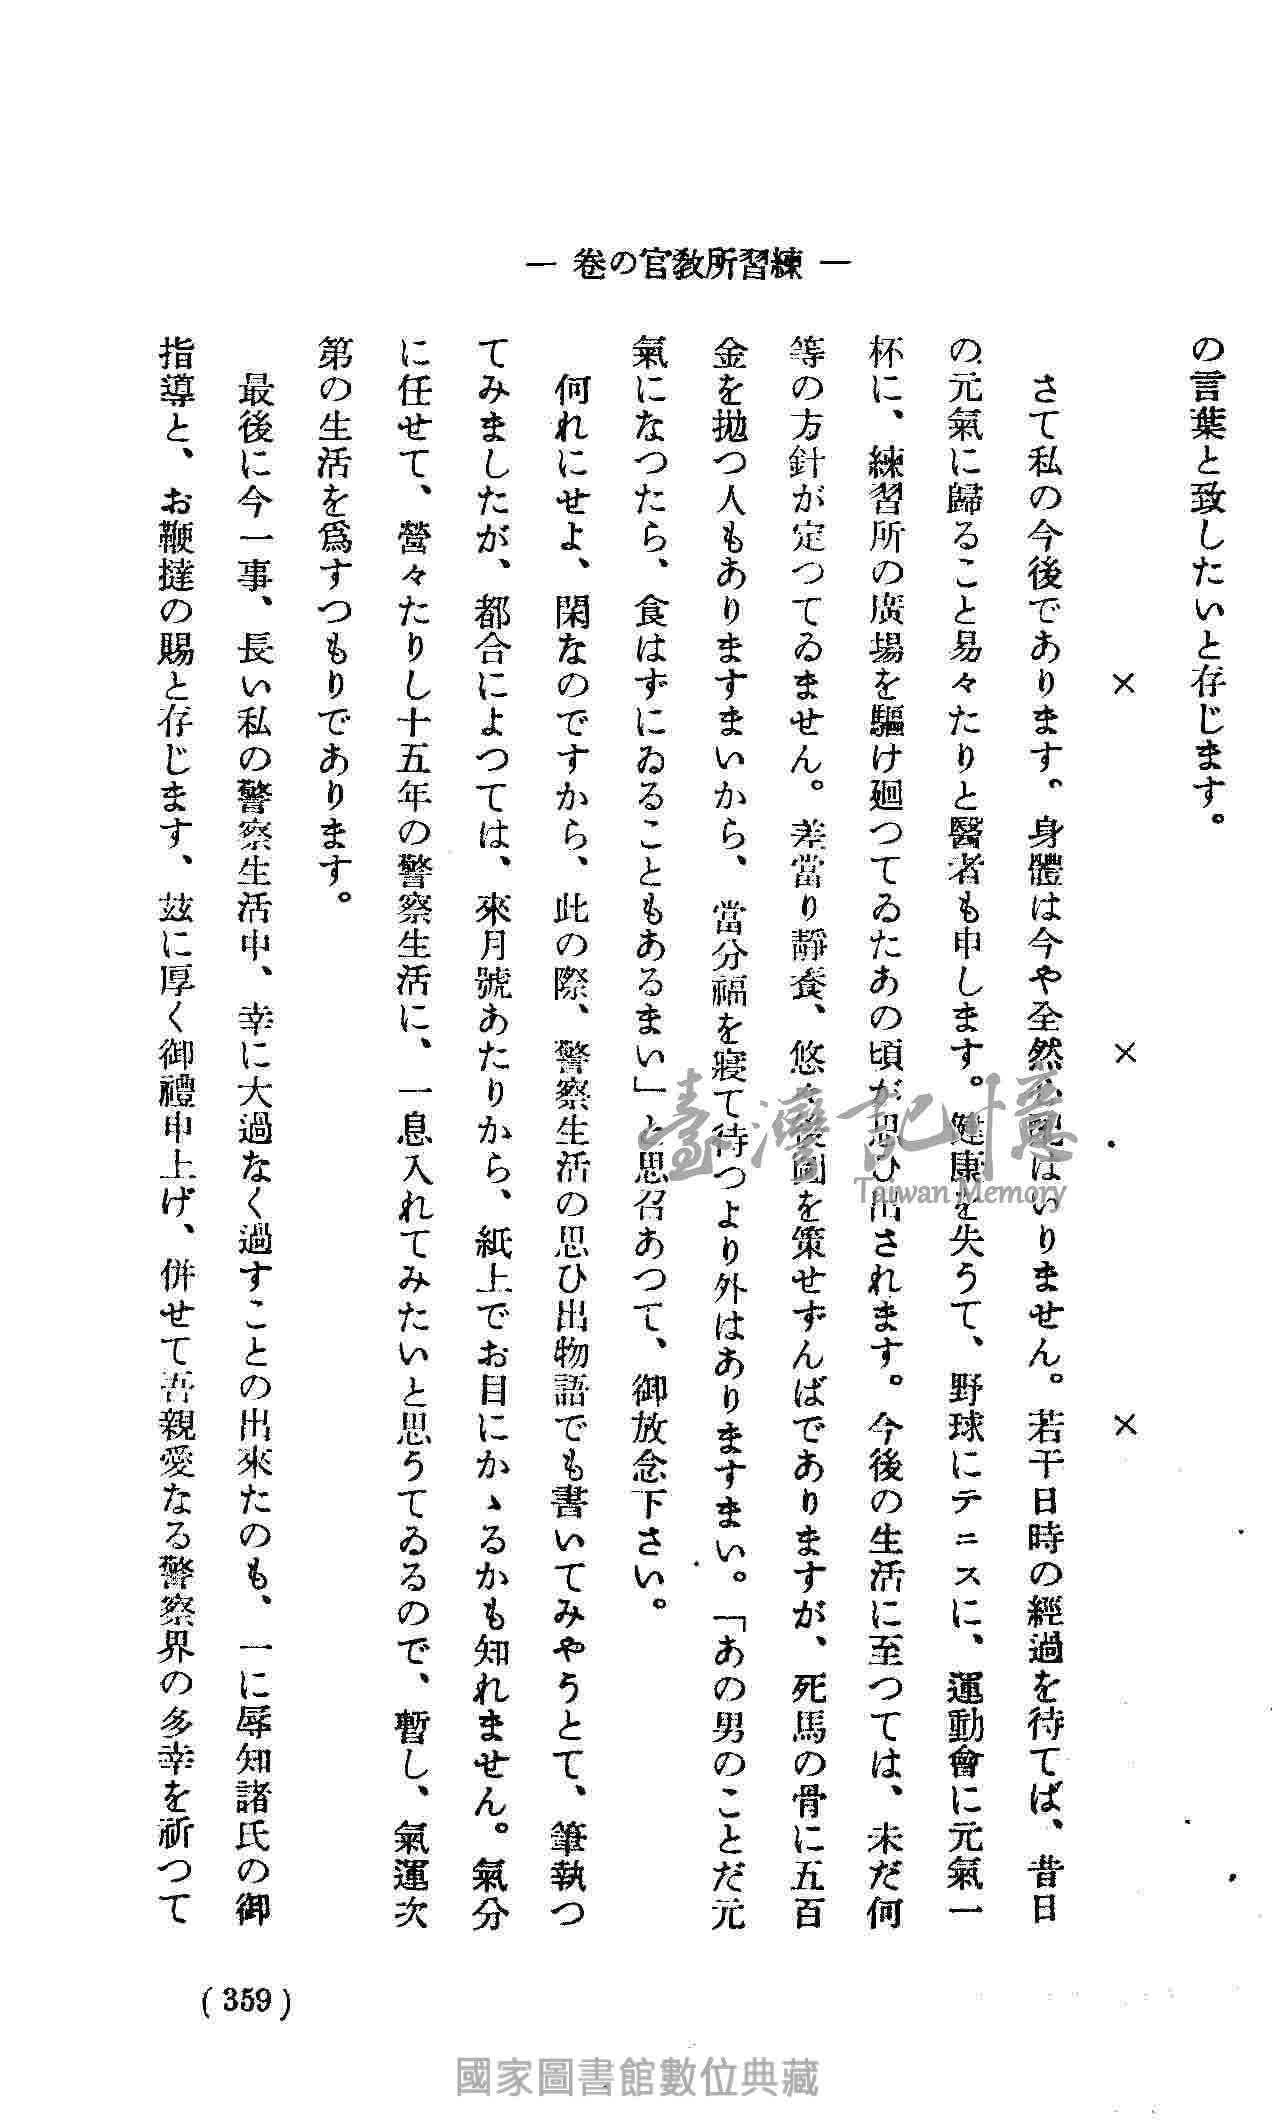 ― 卷の官教所習練 ―
の言葉と致したいと存じます。
× × ×
さて私の今後であります。身體は今や全然心配はいりません。若干日時の經過を待てば、昔日
の元氣に歸ること易々たりと醫者も申します。健康を失うて、野球にテニスに、運動會に元氣一
杯に、練習所の廣場を驅け廻つてゐたあの頃が思ひ出されます。今後の生活に至つては、未だ何
等の方針が定つてゐません。差當り靜養、悠々後圖を策せずんばでありますが、死馬の骨に五百
金を拋つ人もありますまいから、當分福を寢て待つより外はありますまい。「あの男のことだ元
氣になつたら、食はずにゐることもあるまい」と思召あつて、御放念下さい。
何れにせよ、閑なのですから、此の際、警察生活の思ひ出物語でも書いてみやうとて、筆執つ
てみましたが、都合によつては、來月號あたりから、紙上でお目にかゝるかも知れません。氣分
に任せて、營々たりし十五年の警察生活に、一息入れてみたいと思うてゐるので、暫し、氣運次
第の生活を爲すつもりであります。
最後に今一事、長い私の警察生活中、幸に大過なく過すことの出來たのも、一に辱知諸氏の御
指導と、お鞭撻の賜と存じます、玆に厚く御禮申上げ、併せて吾親愛なる警察界の多幸を祈つて
(359)
臺灣記憶
Taiwan Memory
國家圖書館數位典藏